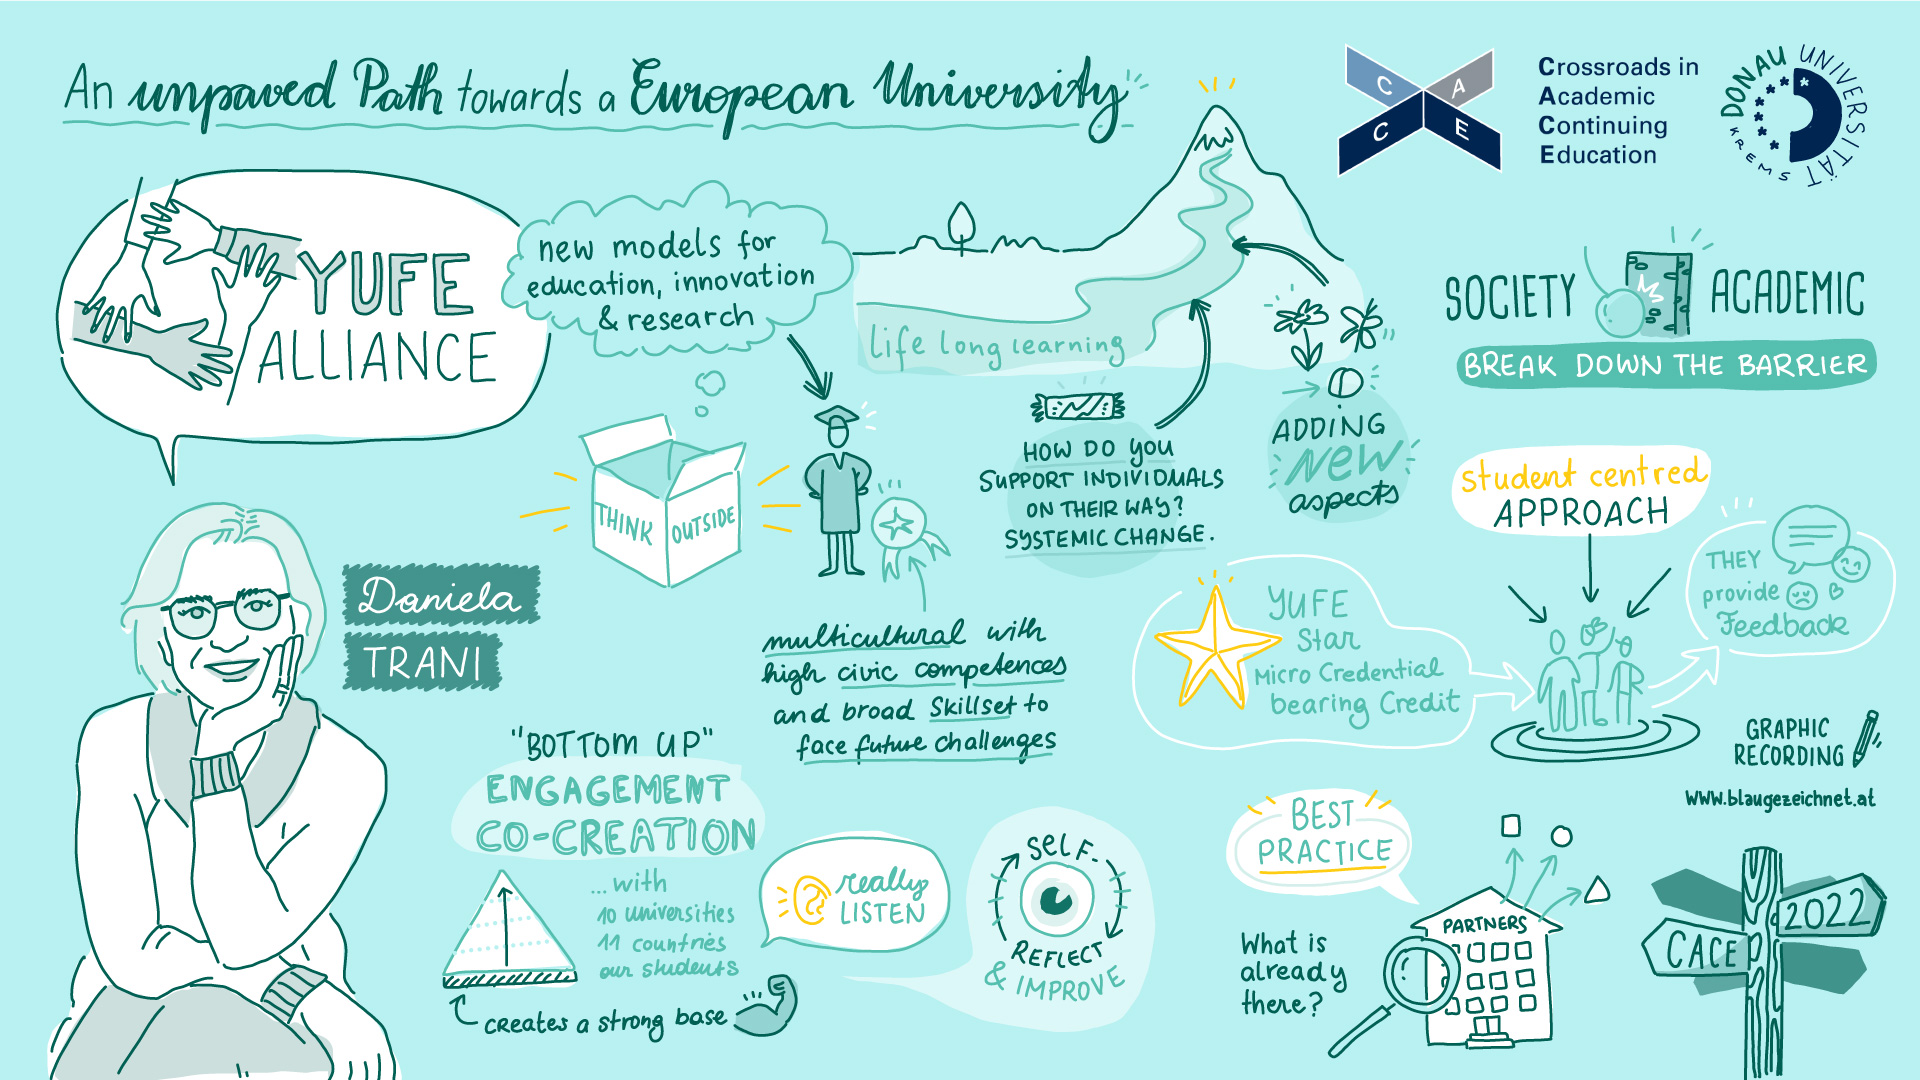 An unpaved Path towards a European University
C A
C E
Crossroads in
Academic
Continuing
Education
DONAU UNIVERSITÄT
KREMS
YUFE
ALLIANCE
new models for
education, innovation
& research
life long learning
SOCIETY ACADEMIC
BREAK DOWN THE BARRIER
THINK OUTSIDE
HOW DO YOU
SUPPORT INDIVIDUALS
ON THEIR WAY?
SYSTEMIC CHANGE.
ADDING
NEW
aspects
student centred
APPROACH
THEY
provide
Feedback
Daniela
TRANI
multicultural with
high civic competences
and broad Skillset to
face future challenges
YUFE
Star
Micro Credential
bearing Credit
GRAPHIC
RECORDING
www.blaugezeichnet.at
"BOTTOM UP"
ENGAGEMENT
CO-CREATION
...with
10 universities
11 countries
our students
creates a strong base
really
LISTEN
SELF-
REFLECT
& IMPROVE
BEST
PRACTICE
What is
already
there?
PARTNERS
2022
CACE